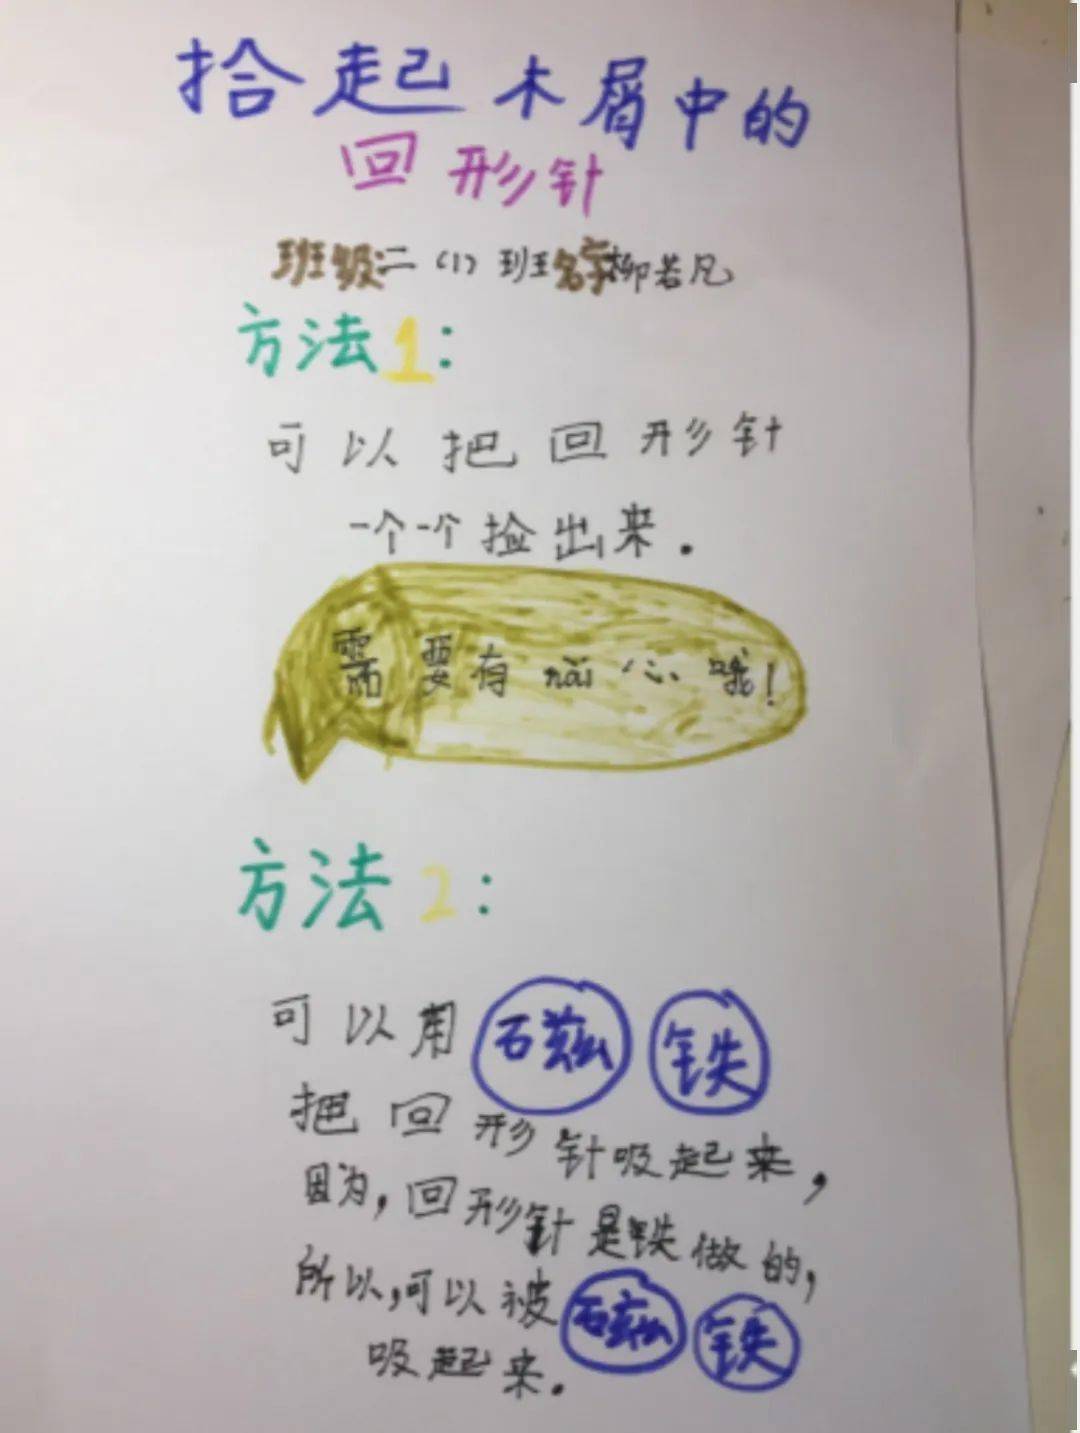 拾起木屑中的
回形针
班级:二（1）班名字柳若凡
方法1：
可以把回形针
一个一个捡出来.
需要有nài心哦!
方法2：
可以用石兹铁
把回形针吸起来，
因为，回形针是铁做的，
所以，可以被磁铁
吸起来.